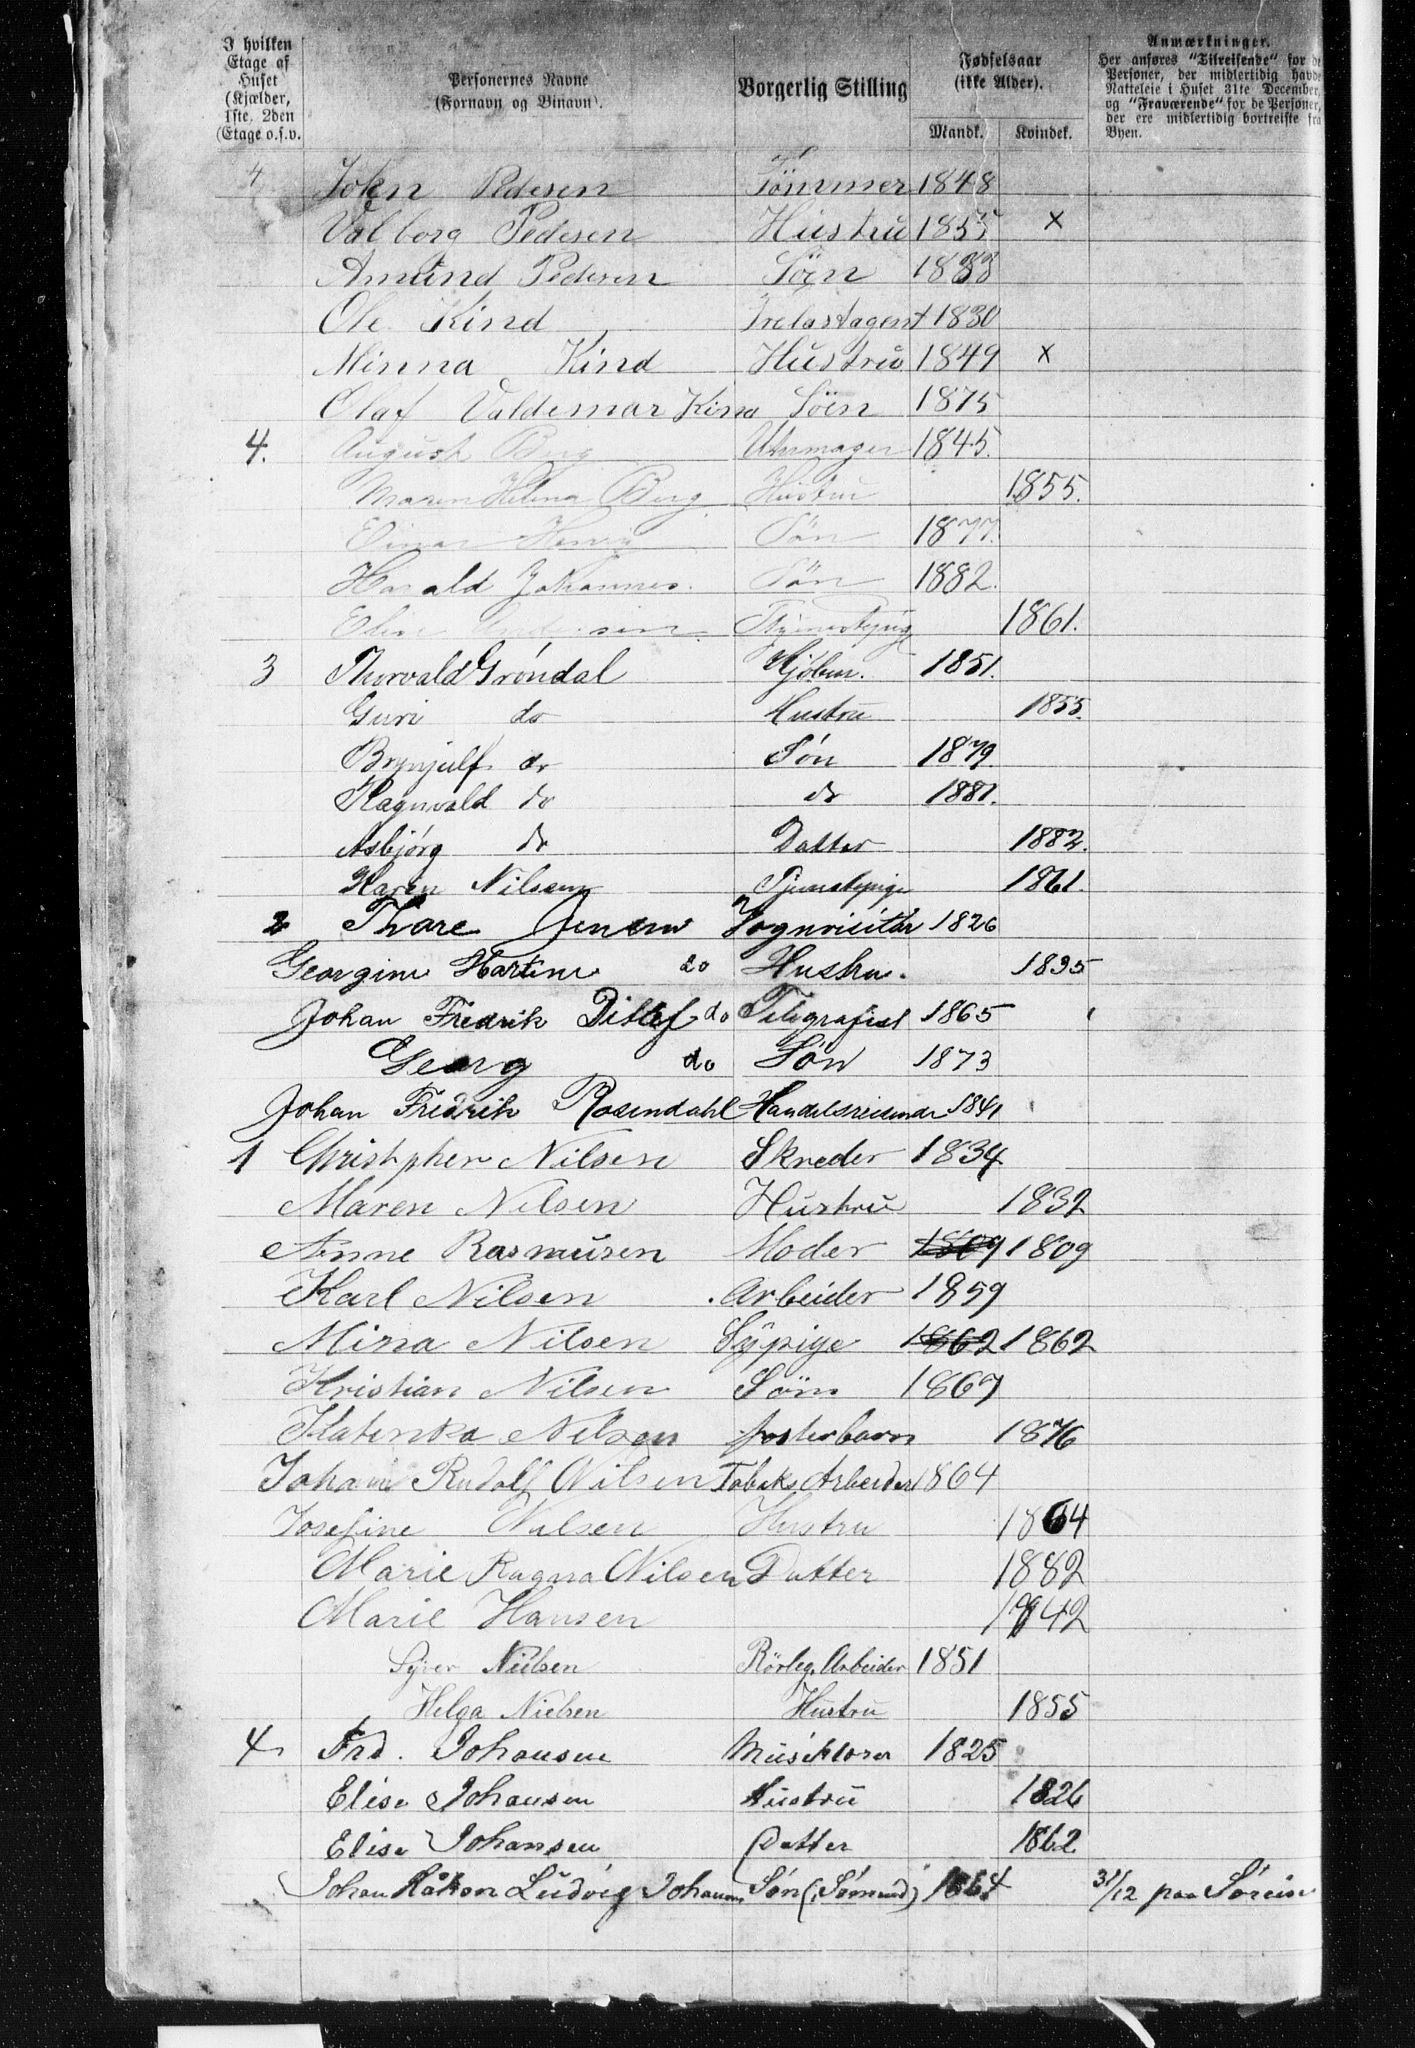 I hvilken Etage af Huset (Kjælder, 1ste, 2den Etage o.s.v.
Personernes Navne (Fornavn og Binavn).
Borgerlig Stilling
Fødselsaar (ikke Alder).
Mandk.
Kvindek.
Anmærkninger.
Her anføres "Tilreisende" for de Personer, der midlertidig havde Natteleie i Huset 31te December, og "Fraværende" for de Personer, der ere midlertidig bortreiste fra Byen.
4 John Pedesen Tömmer 1848
Valborg Pedesen Hustru 1855 x
Amund Pedersen Sön 1883
Ole Kind Trelastagent 1830
Minna Kind Hustru 1849 x
Olaf Valdemar Kind Sön 1875
4. August Berg Uhrmager 1845.
Maren Helena Berg Hustru 1855.
Einar Henry Sön 1877.
Harald Johannes. Sön 1882.
Tjenestepige 1861.
3 Thorvald Gröndal Kjöbm. 1851.
Guri do Hustru 1855.
Brynjulf do Sön 1879.
Ragnvald do do 1881.
Asbjörg do Datter 1882.
Karen Nilsen Tjenestepige 1861.
2 Thore Jensen Vognvisitör 1826
Georgine Martine do Hustru. 1835
Johan Fredrik Ditlef do Telegrafist 1865
Georg do Sön 1873
Johan Fredrik Rosendahl Handelsreisende 1841
1 Christopher Nilsen Skreder 1834
Maren Nilsen Hustru 1832
Anne Rasmusen Moder 1809 1809
Karl Nilsen Arbeider 1859
Mina Nilsen Sypige 1862 1862
Kristian Nilsen Sön 1867
Katinka Nilsen fosterbarn 1876
Johan Rudolf Nilsen Tobaks Arbeider 1864
Josefine Nilsen Hustru 1864
Marie Ragna Nilsen Datter 1882
Marie Hansen 1842
Syver Nielsen Rörleg. Arbeider 1851
Helga Nielsen Hustru 1855
4 Frd. Johansen Musiklærer 1825
Elise Johansen Hustru 1826
Elise Johansen Datter 1862
Johan Håkon Ludvig Johansen Sön (Sömand) 1864 31/12 paa Söreise